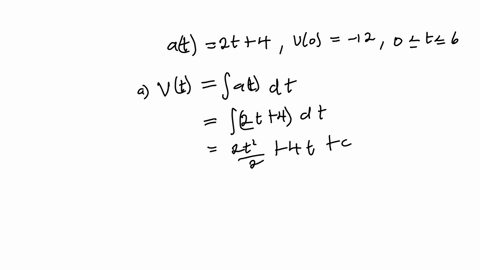 a(t) = 2t+4 , v(0) = -12 , 0 ≤ t ≤ 6
a) V(t) = ∫a(t) dt
= ∫(2t+4) dt
= 2t²/2 +4t +c